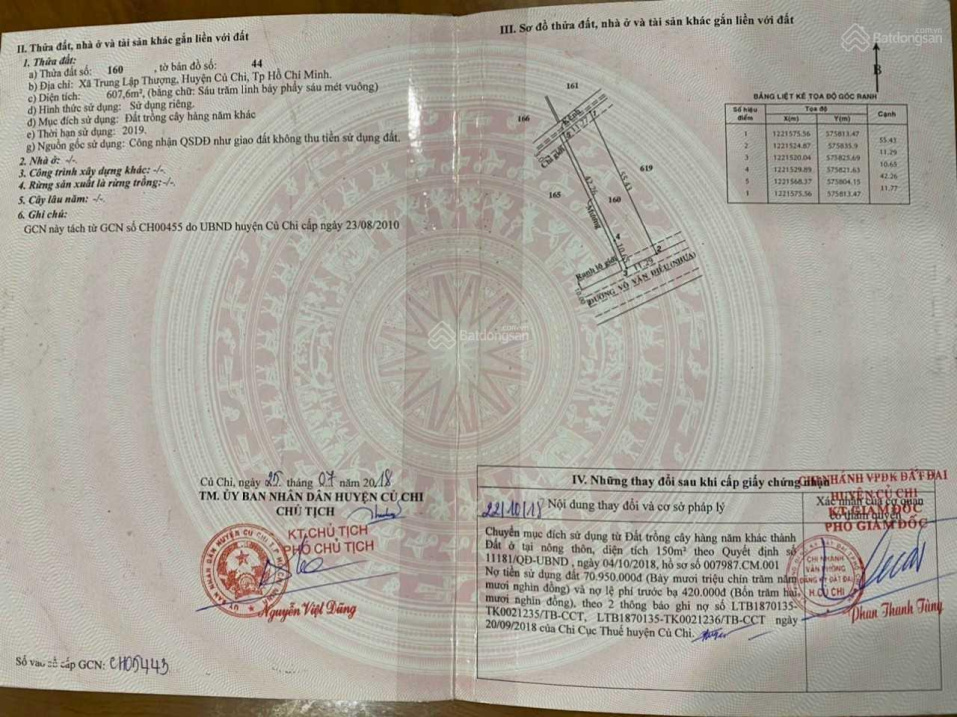 II. Thửa đất, nhà ở và tài sản khác gắn liền với đất
1. Thửa đất:
a) Thửa đất số: 160 , tờ bản đồ số: 44
b) Địa chỉ: Xã Trung Lập Thượng, Huyện Củ Chi, Tp Hồ Chí Minh.
c) Diện tích: 607,6m², (bằng chữ: Sáu trăm linh bảy phẩy sáu mét vuông)
d) Hình thức sử dụng: Sử dụng riêng.
đ) Mục đích sử dụng: Đất trồng cây hàng năm khác
e) Thời hạn sử dụng: 2019.
g) Nguồn gốc sử dụng: Công nhận QSDĐ như giao đất không thu tiền sử dụng đất.
2. Nhà ở: -/-.
3. Công trình xây dựng khác: -/-.
4. Rừng sản xuất là rừng trồng:-/-.
5. Cây lâu năm: -/-.
6. Ghi chú:
GCN này tách từ GCN số CH00455 do UBND huyện Củ Chi cấp ngày 23/08/2010
Củ Chi, ngày 25 tháng 07 năm 2018
TM. ỦY BAN NHÂN DÂN HUYỆN CỦ CHI
CHỦ TỊCH
KT.CHỦ TỊCH
PHÓ CHỦ TỊCH
Nguyễn Việt Dũng
Số vào sổ cấp GCN: CH05443
III. Sơ đồ thửa đất, nhà ở và tài sản khác gắn liền với đất
Batdongsan
B
161
166
11.77
619
165
42.26
55.41
160
Mương
4
10.65
2
Ranh lộ giới
3
11.29
10.00
ĐƯỜNG VÕ VĂN ĐIỀU (NHỰA)
BẢNG LIỆT KÊ TỌA ĐỘ GÓC RANH
Số hiệu điểm Tọa độ Cạnh
X(m) Y(m)
1 1221575.56 575813.47
55.41
2 1221524.87 575835.9
11.29
3 1221520.04 575825.69
10.65
4 1221529.89 575821.63
42.26
5 1221568.37 575804.15
11.77
1 1221575.56 575813.47
Batdongsan
IV. Những thay đổi sau khi cấp giấy chứng nhận
Nội dung thay đổi và cơ sở pháp lý
Xác nhận của cơ quan
có thẩm quyền
22/10/18
CHI NHÁNH VPĐK ĐẤT ĐAI
HUYỆN CỦ CHI
KT.GIÁM ĐỐC
PHÓ GIÁM ĐỐC
Chuyển mục đích sử dụng từ Đất trồng cây hàng năm khác thành
Đất ở tại nông thôn, diện tích 150m² theo Quyết định số
11181/QĐ-UBND , ngày 04/10/2018, hồ sơ số 007987.CM.001
Nợ tiền sử dụng đất 70.950.000đ (Bảy mươi triệu chín trăm năm
mươi nghìn đồng) và nợ lệ phí trước bạ 420.000đ (Bốn trăm hai
mươi nghìn đồng), theo 2 thông báo ghi nợ số LTB1870135-
TK0021235/TB-CCT, LTB1870135-TK0021236/TB-CCT ngày
20/09/2018 của Chi Cục Thuế huyện Củ Chi.
CHI NHÁNH
VĂN PHÒNG
ĐĂNG KÝ ĐẤT ĐAI
H.CỦ CHI
Phan Thanh Tùng